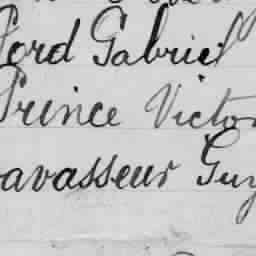 Ford Gabriel
Prince Victor
avasseur Guy